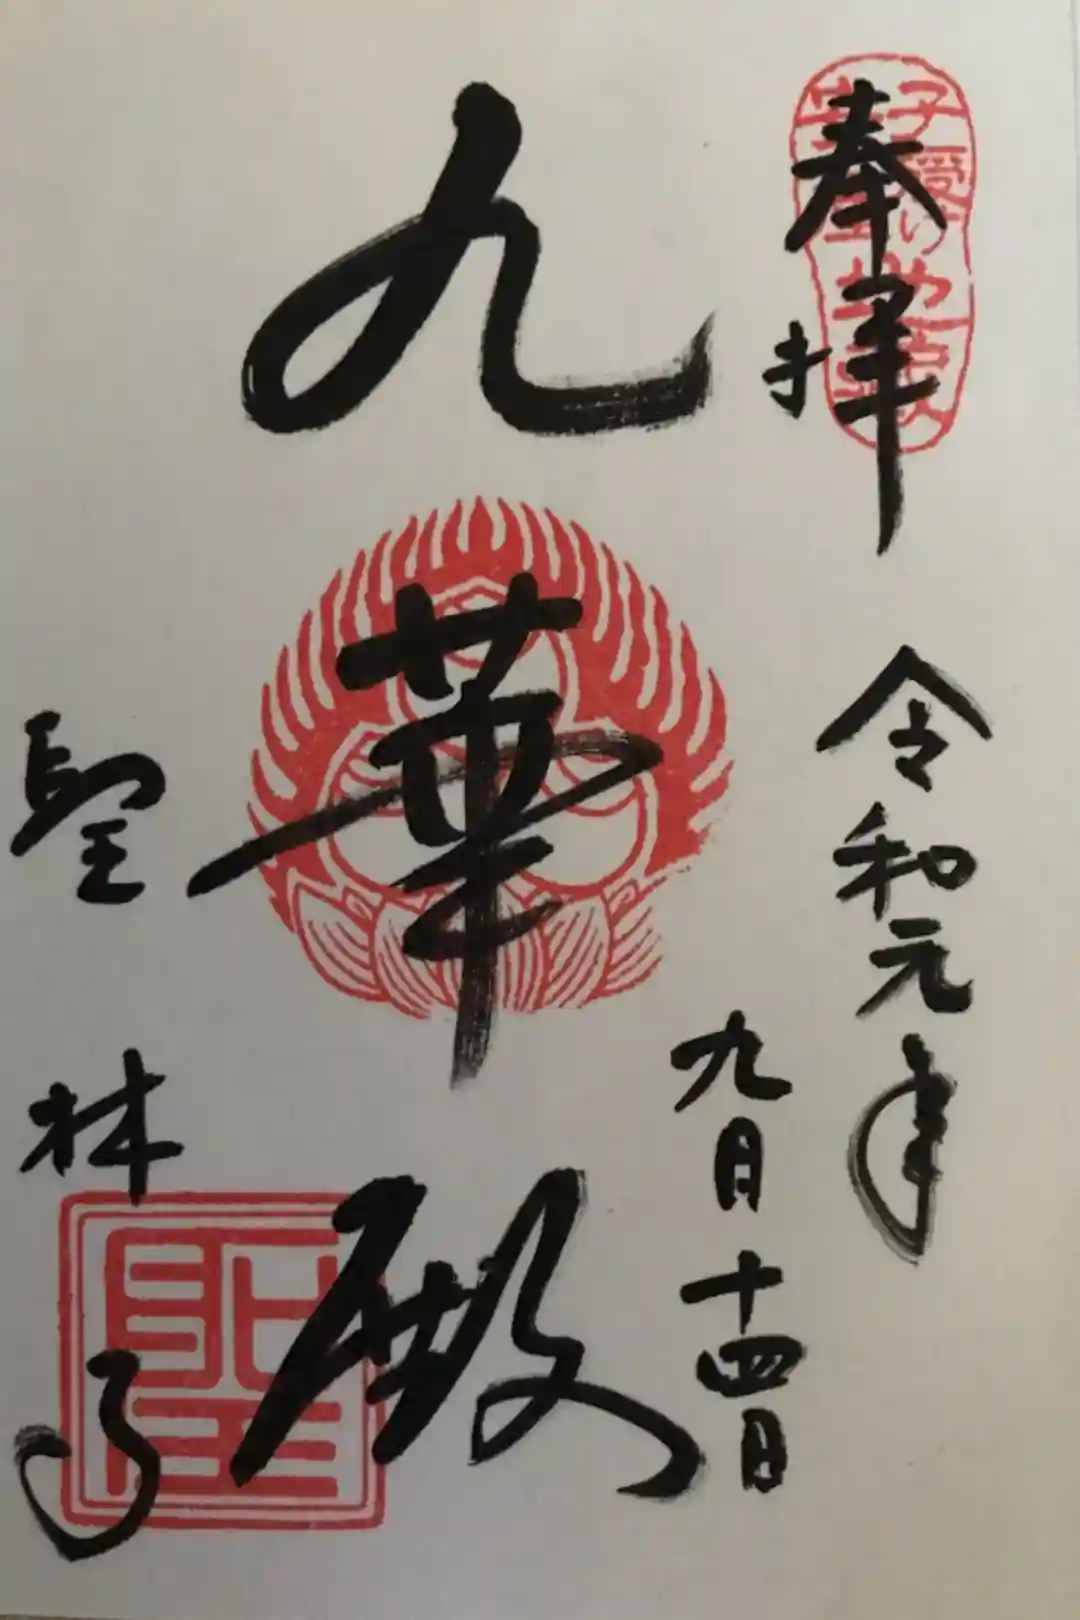 奉拝
令和元年
九月十四日
九華殿
聖林寺
子授け地蔵